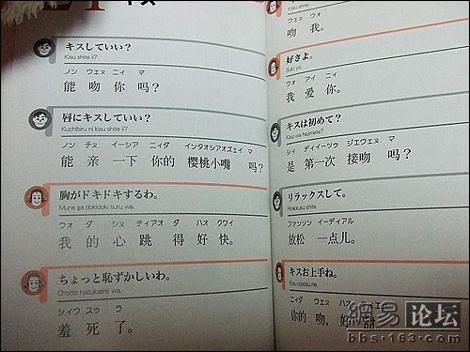 キス
キスしていい?
Kisu shite ii?
ノン ウェヌ ニィ マ
能 吻 你 吗?
唇にキスしていい?
Kuchibiru ni kisu shite ii?
ノン チヌ イーシア ニィダ インタオシアオズェイ マ
能 亲 一下 你的 樱桃小嘴 吗?
胸がドキドキするわ。
Mune ga dokidoki suru wa.
ウォ ダ シヌ ティアオ ダ ハオ クワイ
我 的 心 跳 得 好 快。
ちょっと恥ずかしいわ。
Chotto hazukashii wa.
シィウ スゥ ラ
羞 死 了。
ウェヌ ウォ
吻 我。
好きよ。
Suki yo.
ウォ アイ ニィ
我 爱 你。
キスは初めて?
Kisu wa hajimete?
シィ ディイーツゥ ジエウェヌ マ
是 第一次 接吻 吗?
リラックスして。
Rirakkusu shite.
ファンソン イーディアル
放松 一点儿。
キスお上手ね。
ニィダ ウェヌ ハオ
你的 吻, 好 甜。
網易 论坛
bbs.163.com